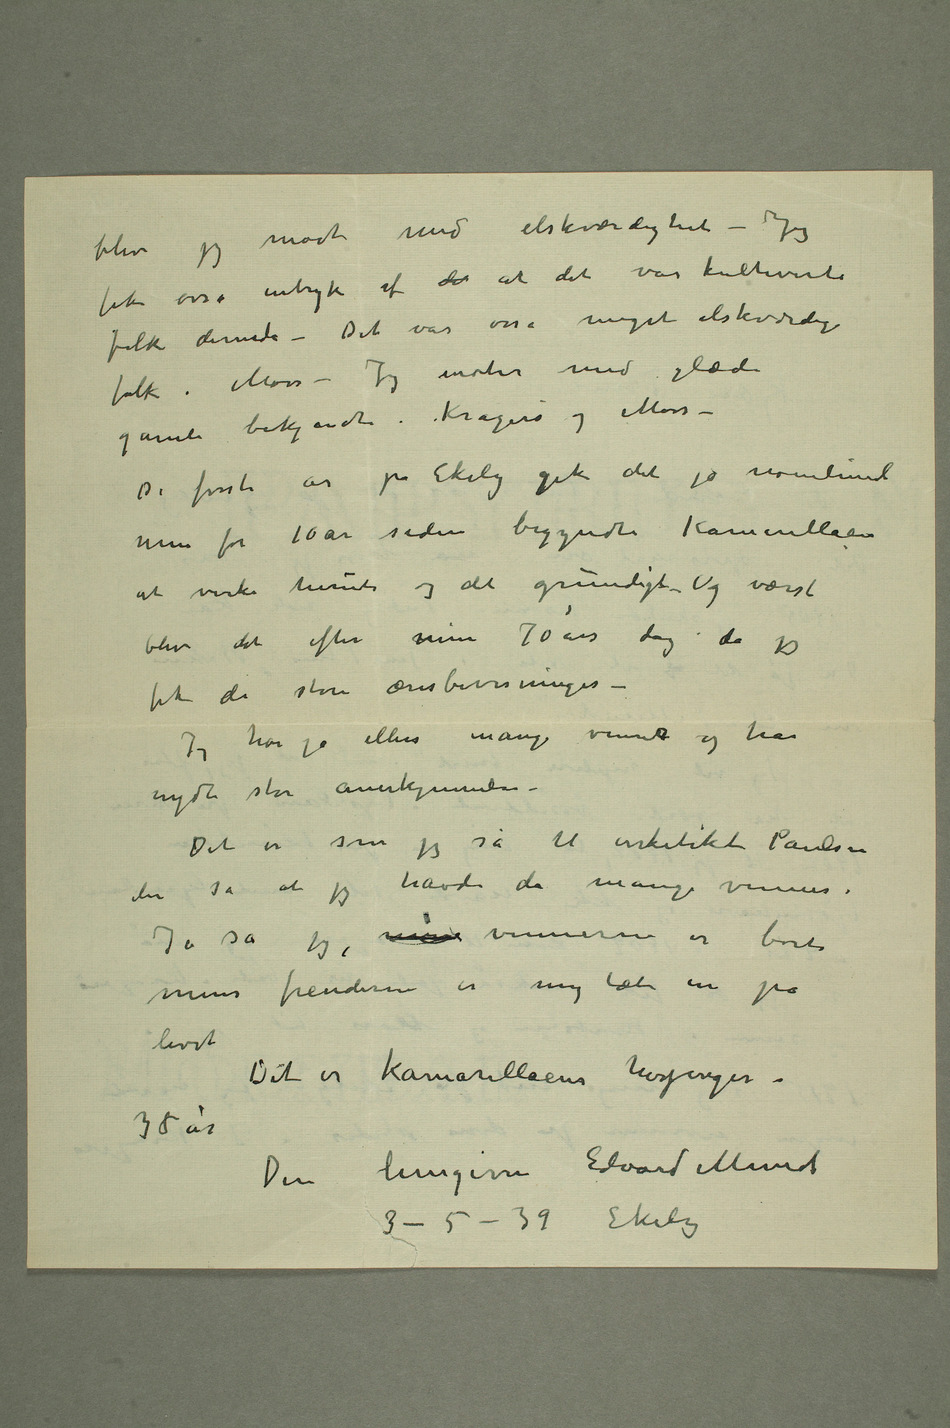 blev jeg mødt med elskværdighet – Jeg
fik også intryk af det at det var kultiverte
folk dernede – Det var også meget elskværdige
folk i Moss – Jeg møter med glæde
gamle bekjendte i Kragerø og Moss –
De første år på Ekely gik det jo noenlunde
men for 10 år siden begyndte Kamarillaen
at virke herute og det grundigt – Og værst
blev det efter min 70 års dag da jeg
fik de store æresbevisninger –
Jeg har jo ellers mange venner og har
nydt stor anerkjennelse –
Det er som jeg sa til arkitekt Paulsen
der sa at jeg havde da mange venner.
Ja sa jeg, vennerne er borte
mens fienderne er mig tæt in på
livet
Det er Kamarillaens herjinger –
38 år
Din hengivne Edvard Munch
3 – 5 – 39 Ekely